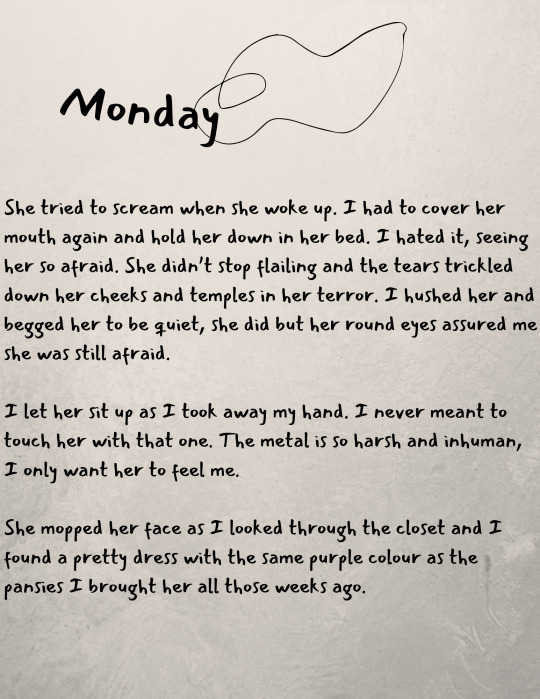 Monday
She tried to scream when she woke up. I had to cover her
mouth again and hold her down in her bed. I hated it, seeing
her so afraid. She didn't stop flailing and the tears trickled
down her cheeks and temples in her terror. I hushed her and
begged her to be quiet, she did but her round eyes assured me
she was still afraid.
I let her sit up as I took away my hand. I never meant to
touch her with that one. The metal is so harsh and inhuman,
I only want her to feel me.
She mopped her face as I looked through the closet and I
found a pretty dress with the same purple colour as the
pansies I brought her all those weeks ago.